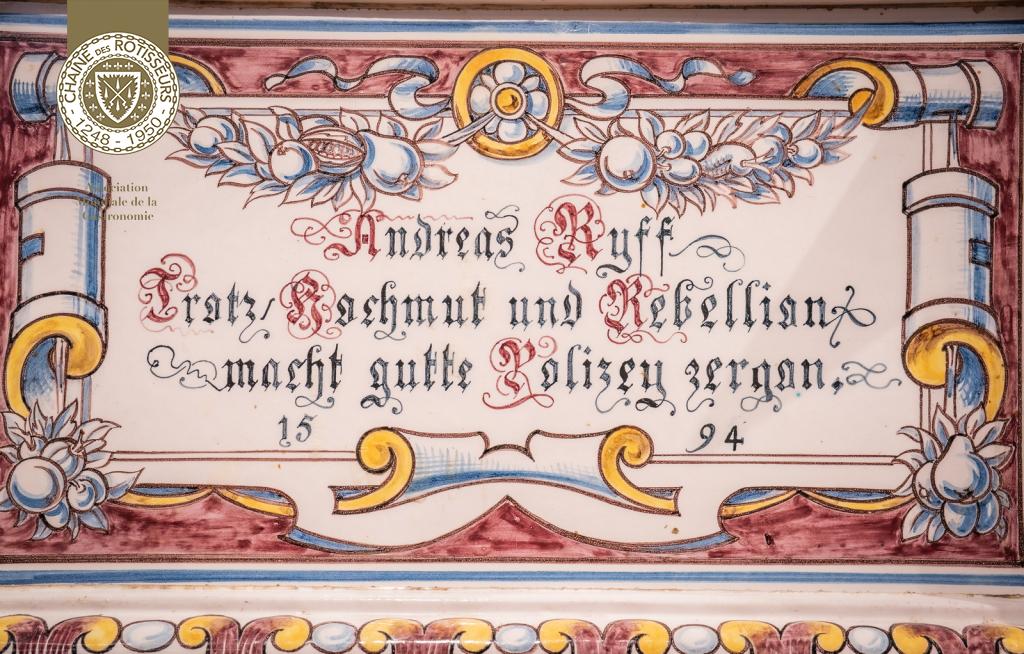 CHAINE DES ROTISSEURS
1248 - 1950
Association
Mondiale de la
Gastronomie
Andreas Ryff
Trotz/ Hochmut und Rebellion
macht gutte Polizey zergon.
15 94